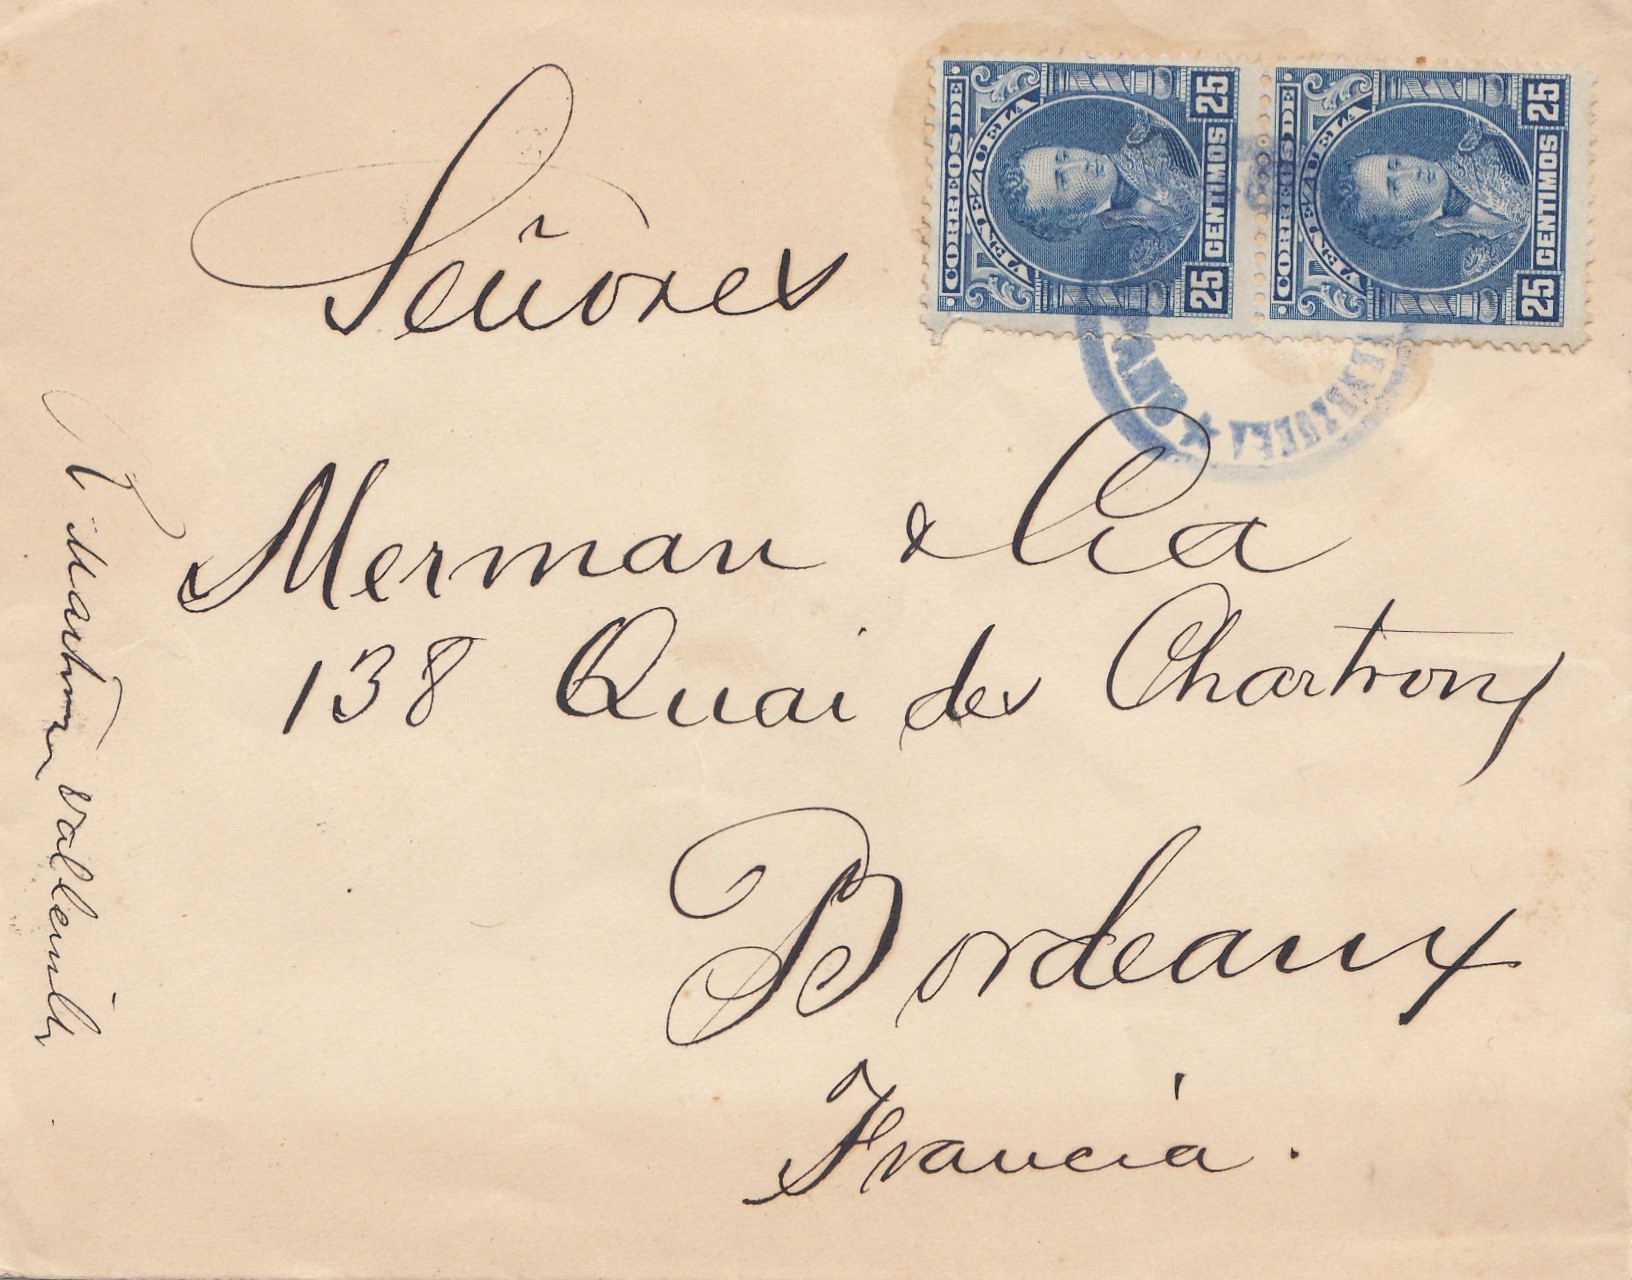 CORREOS DE VENEZUELA
25 CENTIMOS 25
CORREOS DE VENEZUELA
25 CENTIMOS 25
VENEZUELA
Señores
Merman & Cia
138 Quai des Chartrons
Bordeaux
Francia.